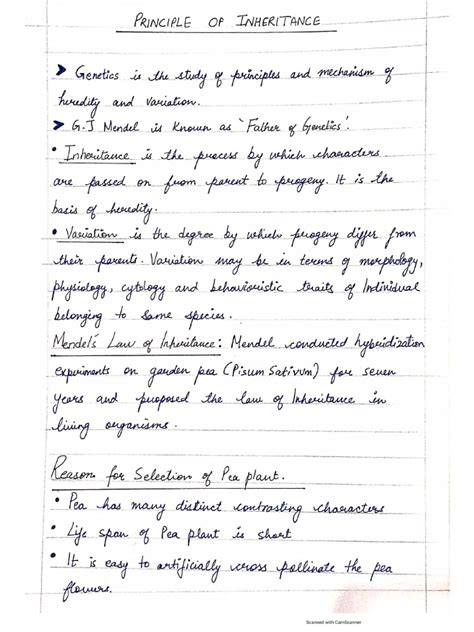 PRINCIPLE OF INHERITANCE
➤ Genetics is the study of principles and mechanism of
heredity and variation.
➤ G.J Mendel is Known as 'Father of Genetics'.
• Inheritance is the process by which characters
are passed on from parent to progeny. It is the
basis of heredity.
• Variation is the degree by which progeny differ from
their parents. Variation may be in terms of morphology,
physiology, cytology and behavioristic traits of Individual
belonging to same species.
Mendel's Law of Inheritance: Mendel conducted hybridization
experiments on garden pea (Pisum Sativum) for seven
years and proposed the law of Inheritance in
living organisms.
Reason for Selection of Pea plant.
• Pea has many distinct contrasting characters
• Life span of Pea plant is short
• It is easy to artificially cross pollinate the pea
flowers.
Scanned with CamScanner